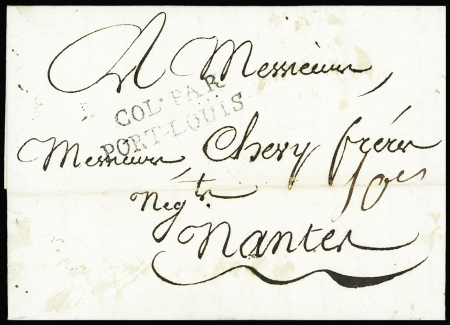 A Messieurs,
COL·PAR
PORT-LOUIS
Messieurs, Chevy frères
Neg.ts
Nantes